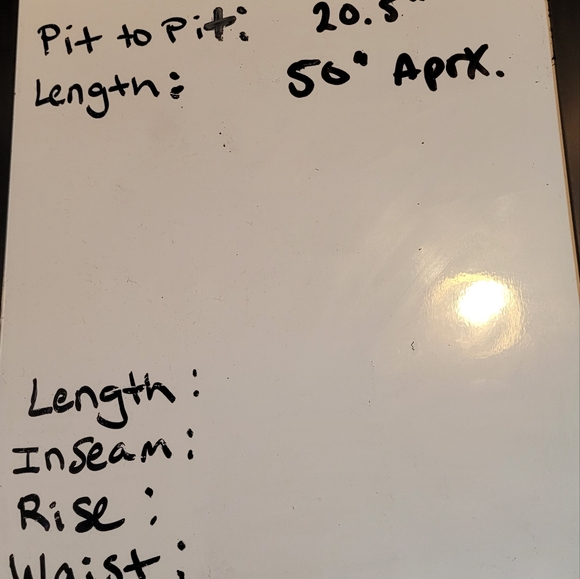 Pit to Pit: 20.5"
Length: 50" Aprx.
Length:
Inseam:
Rise:
Waist: